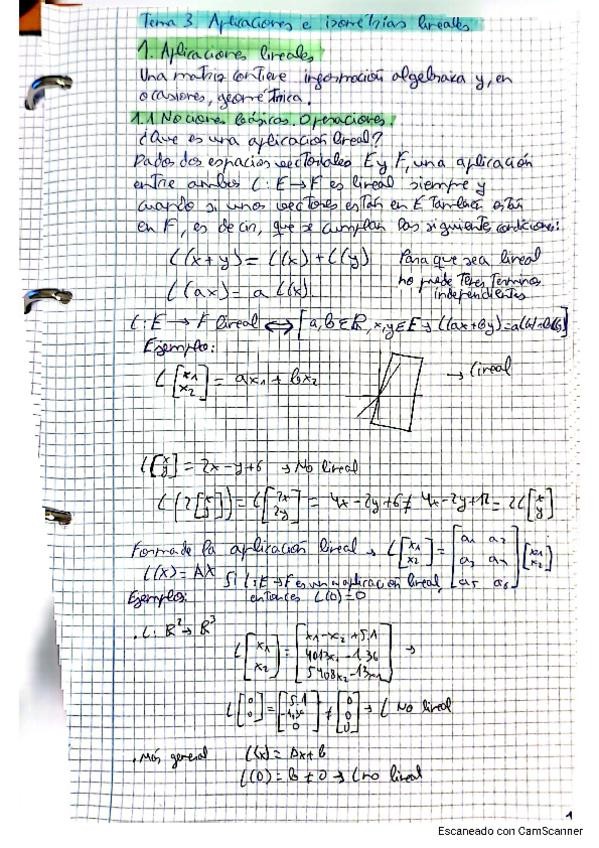 Tema 3. Aplicaciones e isometrías lineales
1. Aplicaciones lineales
Una matriz contiene información algebraica y, en
ocasiones, geométrica.
1.1 Nociones básicas. Operaciones.
¿Que es una aplicación lineal?
Dados dos espacios vectoriales E y F, una aplicación
entre ambos L: E→F es lineal siempre y
cuando si unos vectores están en E también están
en F, es decir, que se cumplan las siguientes condiciones:
L(x+y) = L(x) + L(y) Para que sea lineal
no puede tener términos
L(ax) = a L(x) independientes
L: E → F lineal ⟺ [a,b∈R, x,y∈E → L(ax+by) = aL(x)+bL(y)]
Ejemplo:
L[x1 x2] = ax1 + bx2 → lineal
L[x y] = 2x-y+6 → No lineal
L(2[x y]) = L[2x 2y] = 4x-2y+6 ≠ 4x-2y+12 = 2L[x y]
Forma de la aplicación lineal → L[x1 x2] = [a1 a2 a3 a4 a5 a6][x1 x2]
L(x) = AX Si L: E→F es una aplicación lineal,
Ejemplos: entonces L(0)=0
. L: R² → R³
L[x1 x2] = [x1-x2+5.1 -1.36 5408x2-13x1] →
L[0 0] = [5.1 0] ≠ [0 0 0] → L No lineal
. Más general L(x) = Ax+b
L(0) = b ≠ 0 → L no lineal
1
Escaneado con CamScanner